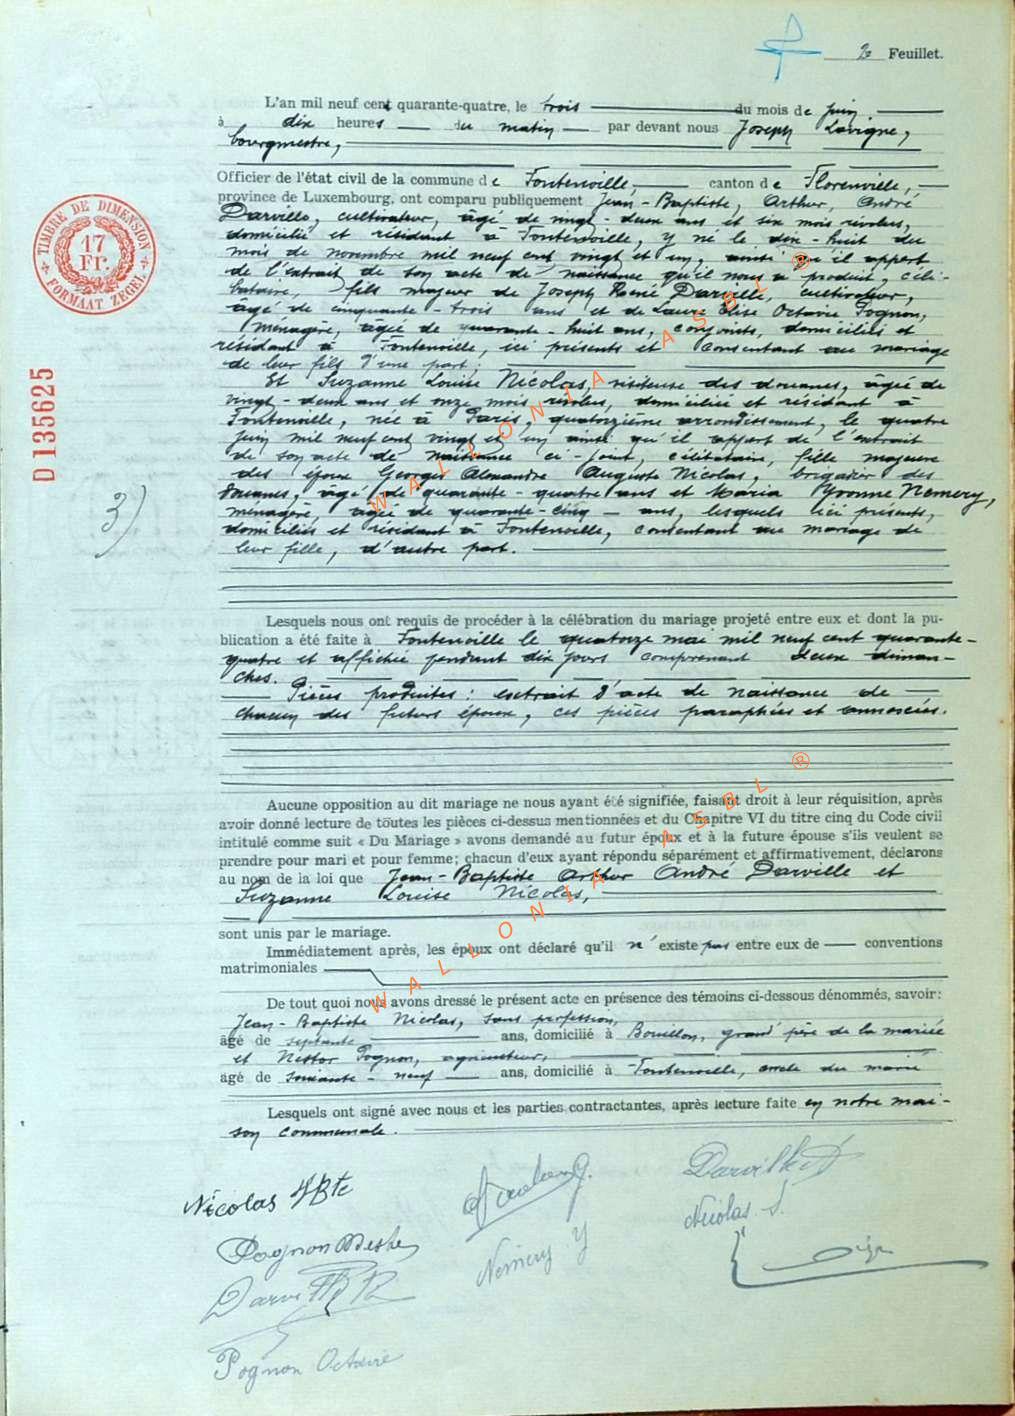 2 Feuillet.
L'an mil neuf cent quarante-quatre, le trois du mois de juin
à dix heures du matin par devant nous Joseph Lavigne,
bourgmestre,
Officier de l'état civil de la commune de Fontenoille, canton de Florenville,
province de Luxembourg, ont comparu publiquement Jean-Baptiste, Arthur, André
Darville, cultivateur, âgé de vingt-deux ans et six mois révolus,
domicilié et résidant à Fontenoille, y né le dix-huit du
mois de novembre mil neuf cent vingt et un, ainsi qu'il appert
de l'extrait de son acte de naissance qu'il nous a produit, céli-
bataire, fils majeur de Joseph René Darville, cultivateur,
âgé de cinquante-trois ans et de Laure Elise Octavie Pognon,
ménagère, âgée de quarante-huit ans, conjoints, domiciliés et
résidant à Fontenoille, ici présents et consentant au mariage
de leur fils d'une part;
Et Suzanne Louise Nicolas, visiteuse des douanes, âgée de
vingt-deux ans et onze mois révolus, domiciliée et résidant à
Fontenoille, née à Paris, quatorzième arrondissement, le quatre
juin mil neuf cent vingt et un ainsi qu'il appert de l'extrait
de son acte de naissance ci-joint, célibataire, fille majeure
des époux Georges Alexandre Auguste Nicolas, brigadier des
douanes, âgé de quarante-quatre ans et Maria Yvonne Nemery,
ménagère, âgée de quarante-cinq ans, lesquels ici présents,
domiciliés et résidant à Fontenoille, consentant au mariage de
leur fille, d'autre part.
Lesquels nous ont requis de procéder à la célébration du mariage projeté entre eux et dont la pu-
blication a été faite à Fontenoille le quatorze mai mil neuf cent quarante-
quatre et affichée pendant dix jours comprenant deux diman-
ches.
Pièces produites: extrait d'acte de naissance de
chacun des futurs époux, ces pièces paraphées et annexées.
Aucune opposition au dit mariage ne nous ayant été signifiée, faisant droit à leur réquisition, après
avoir donné lecture de toutes les pièces ci-dessus mentionnées et du Chapitre VI du titre cinq du Code civil
intitulé comme suit « Du Mariage » avons demandé au futur époux et à la future épouse s'ils veulent se
prendre pour mari et pour femme; chacun d'eux ayant répondu séparément et affirmativement, déclarons
au nom de la loi que Jean-Baptiste Arthur André Darville et
Suzanne Louise Nicolas,
sont unis par le mariage.
Immédiatement après, les époux ont déclaré qu'il n'existe pas entre eux de conventions
matrimoniales
De tout quoi nous avons dressé le présent acte en présence des témoins ci-dessous dénommés, savoir:
Jean-Baptiste Nicolas, sans profession,
âgé de septante ans, domicilié à Bouillon, grand père de la mariée
et Nestor Pognon, agriculteur,
âgé de soixante-neuf ans, domicilié à Fontenoille, oncle du marié
Lesquels ont signé avec nous et les parties contractantes, après lecture faite en notre mai-
son communale.
TIMBRE DE DIMENSION
17
Fr.
FORMAAT ZEGEL
D 135625
3)
Nicolas JBte
Darville A
Nicolas S.
Nemery Y
Pognon Octavie
WALLONIA ASBL ®
WALLONIA ASBL ®